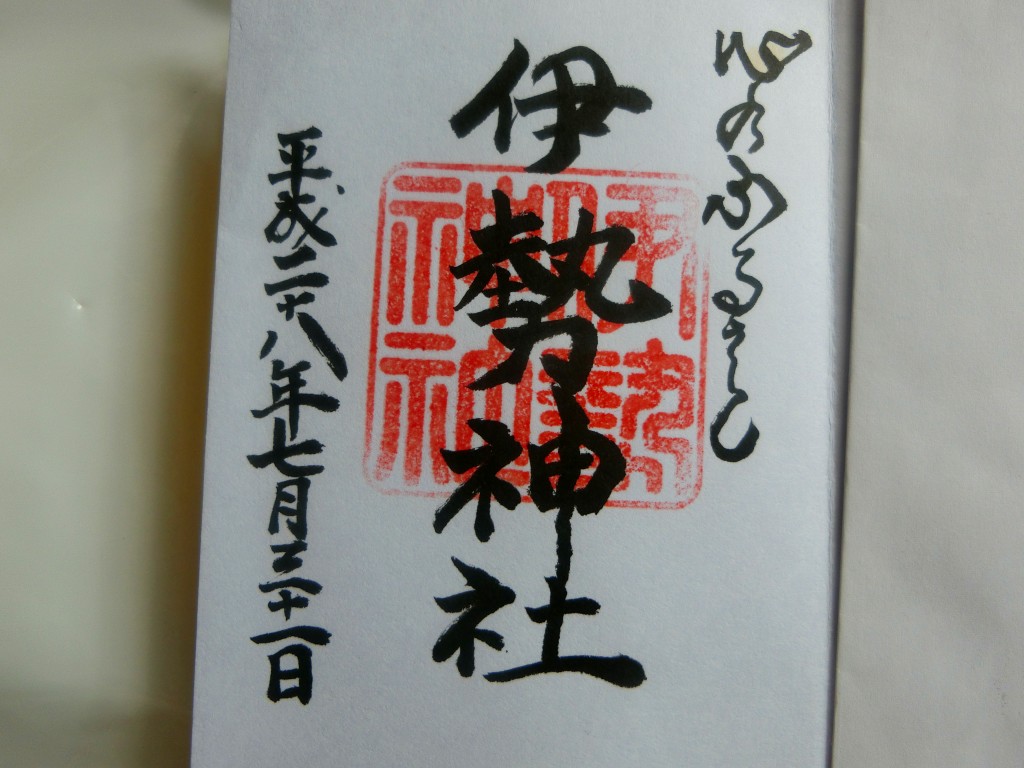 心のふるさと
伊勢神社
伊勢神社
平成二十八年七月三十一日